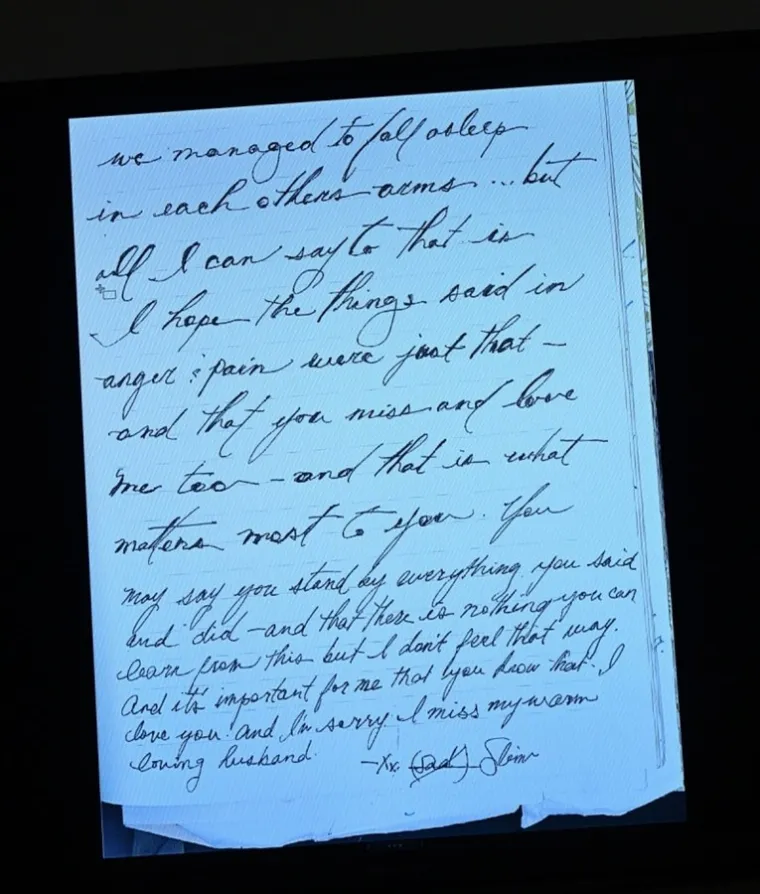 we managed to fall asleep
in each others arms ... but
all I can say to that is
I hope the things said in
anger & pain were just that -
and that you miss and love
me too - and that is what
matters most to you. You
may say you stand by everything you said
and did - and that there is nothing you can
learn from this but I don't feel that way.
And it's important for me that you know that. I
love you. And I'm sorry. I miss my warm
loving husband. -Xx (sad) Slim